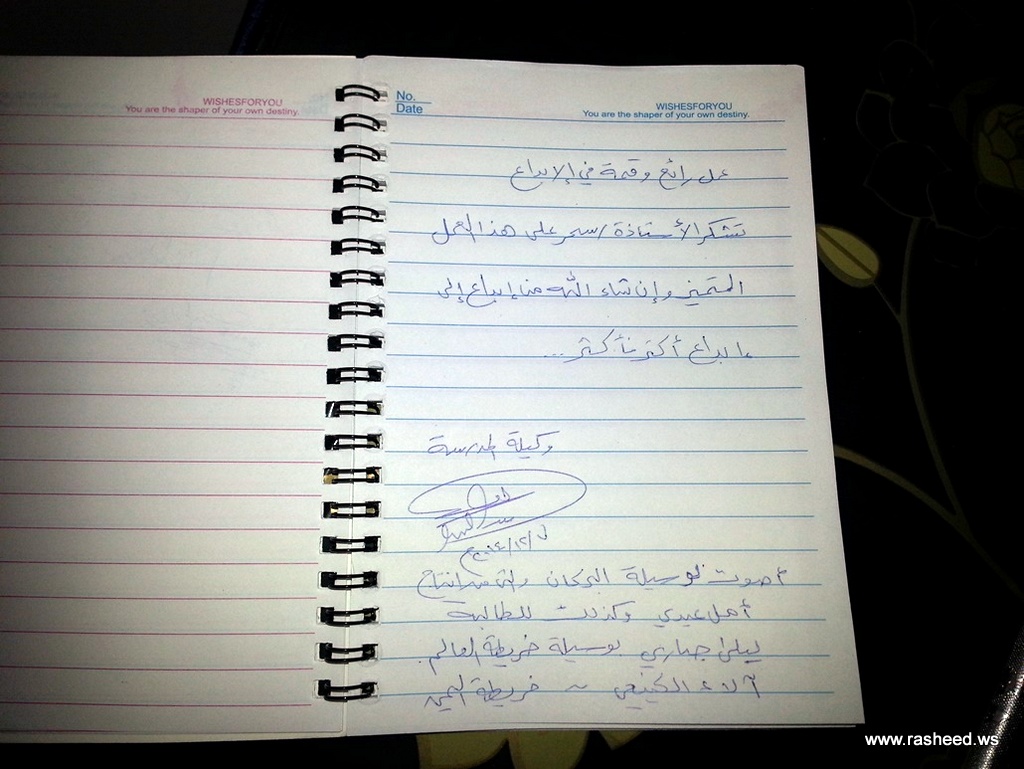 WISHESFORYOU
You are the shaper of your own destiny.
No.
Date
WISHESFORYOU
You are the shaper of your own destiny.
عمل رائع وقمة في الإبداع
نشكر الأستاذة / سحر على هذا العمل
المتميز وإن شاء الله من إبداع إلى
إبداع أكثر فأكثر ...
وكيلة المدرسة
٢٠١٤/١٢/٧م
أصوت لوسيلة البركان والتي من إنتاج
أمل عبدي وكذلك للطالبة
ليلى جباري بوسيلة خريطة العالم.
آلاء الكينعي ~ خريطة اليمن
www.rasheed.ws